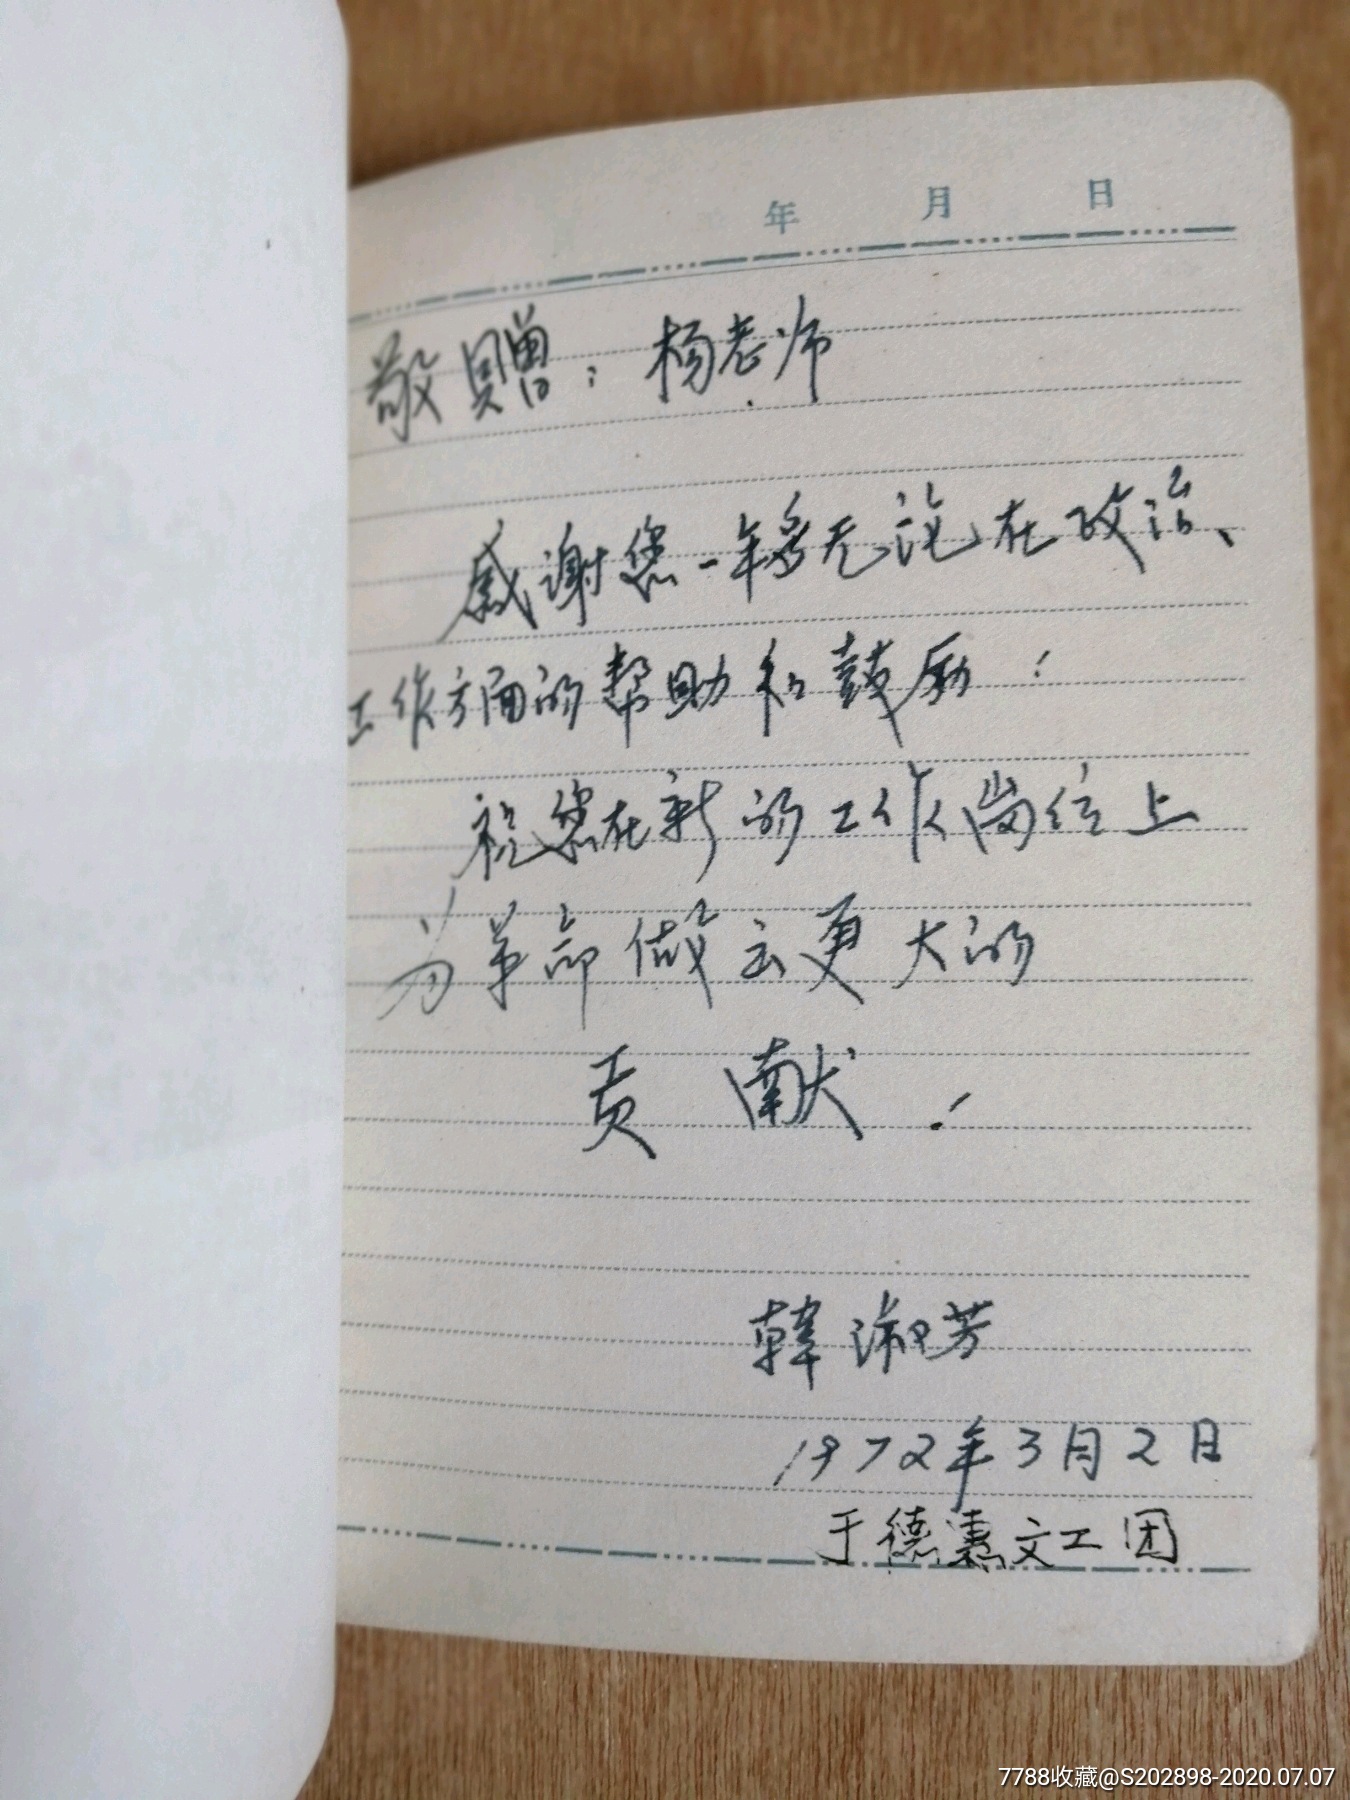 年 月 日
敬赠：杨老师
感谢您一年多无论在政治、
工作方面的帮助和鼓励！
祝您在新的工作岗位上
为革命做出更大的
贡献！
韩淑芳
1972年3月2日
于德惠文工团
7788收藏@S202898-2020.07.07